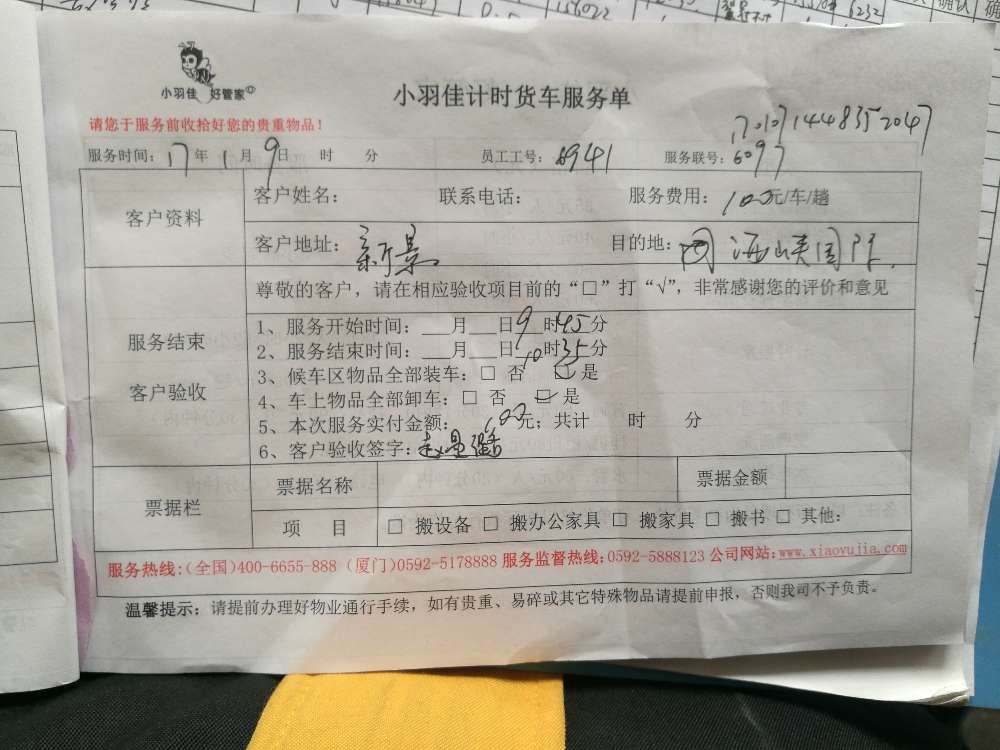 小羽佳 好管家
小羽佳计时货车服务单
请您于服务前收拾好您的贵重物品！
1701071448352047
服务时间：17年1月9日 时 分 员工工号：8941 服务联号：6097
客户资料
客户姓名： 联系电话： 服务费用：100元/车/趟
客户地址：新景 目的地：海峡国际
尊敬的客户，请在相应验收项目前的“□”打“√”，非常感谢您的评价和意见
服务结束
客户验收
1、服务开始时间：___月___日9时45分
2、服务结束时间：___月___日10时35分
3、候车区物品全部装车：□ 否 ☑ 是
4、车上物品全部卸车：□ 否 ☑ 是
5、本次服务实付金额：100元；共计 时 分
6、客户验收签字：
票据栏
票据名称 票据金额
项 目 □ 搬设备 □ 搬办公家具 □ 搬家具 □ 搬书 □ 其他：
服务热线:(全国)400-6655-888 (厦门)0592-5178888 服务监督热线:0592-5888123 公司网站:www.xiaoyujia.com
温馨提示：请提前办理好物业通行手续，如有贵重、易碎或其它特殊物品请提前申报，否则我司不予负责。